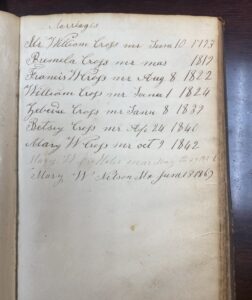 Marriages
Mr. William Cross mr June 10 1793
Pamela Cross mr mas 1819
Francis W Cross mr Aug 8 1822
William Cross mr June 1 1824
Zebedee Cross mr Janu 8 1839
Betsey Cross mr Ap 24 1840
Mary W Cross mr oct 9 1842
W
Mary W Nelson Ma June 18 1869